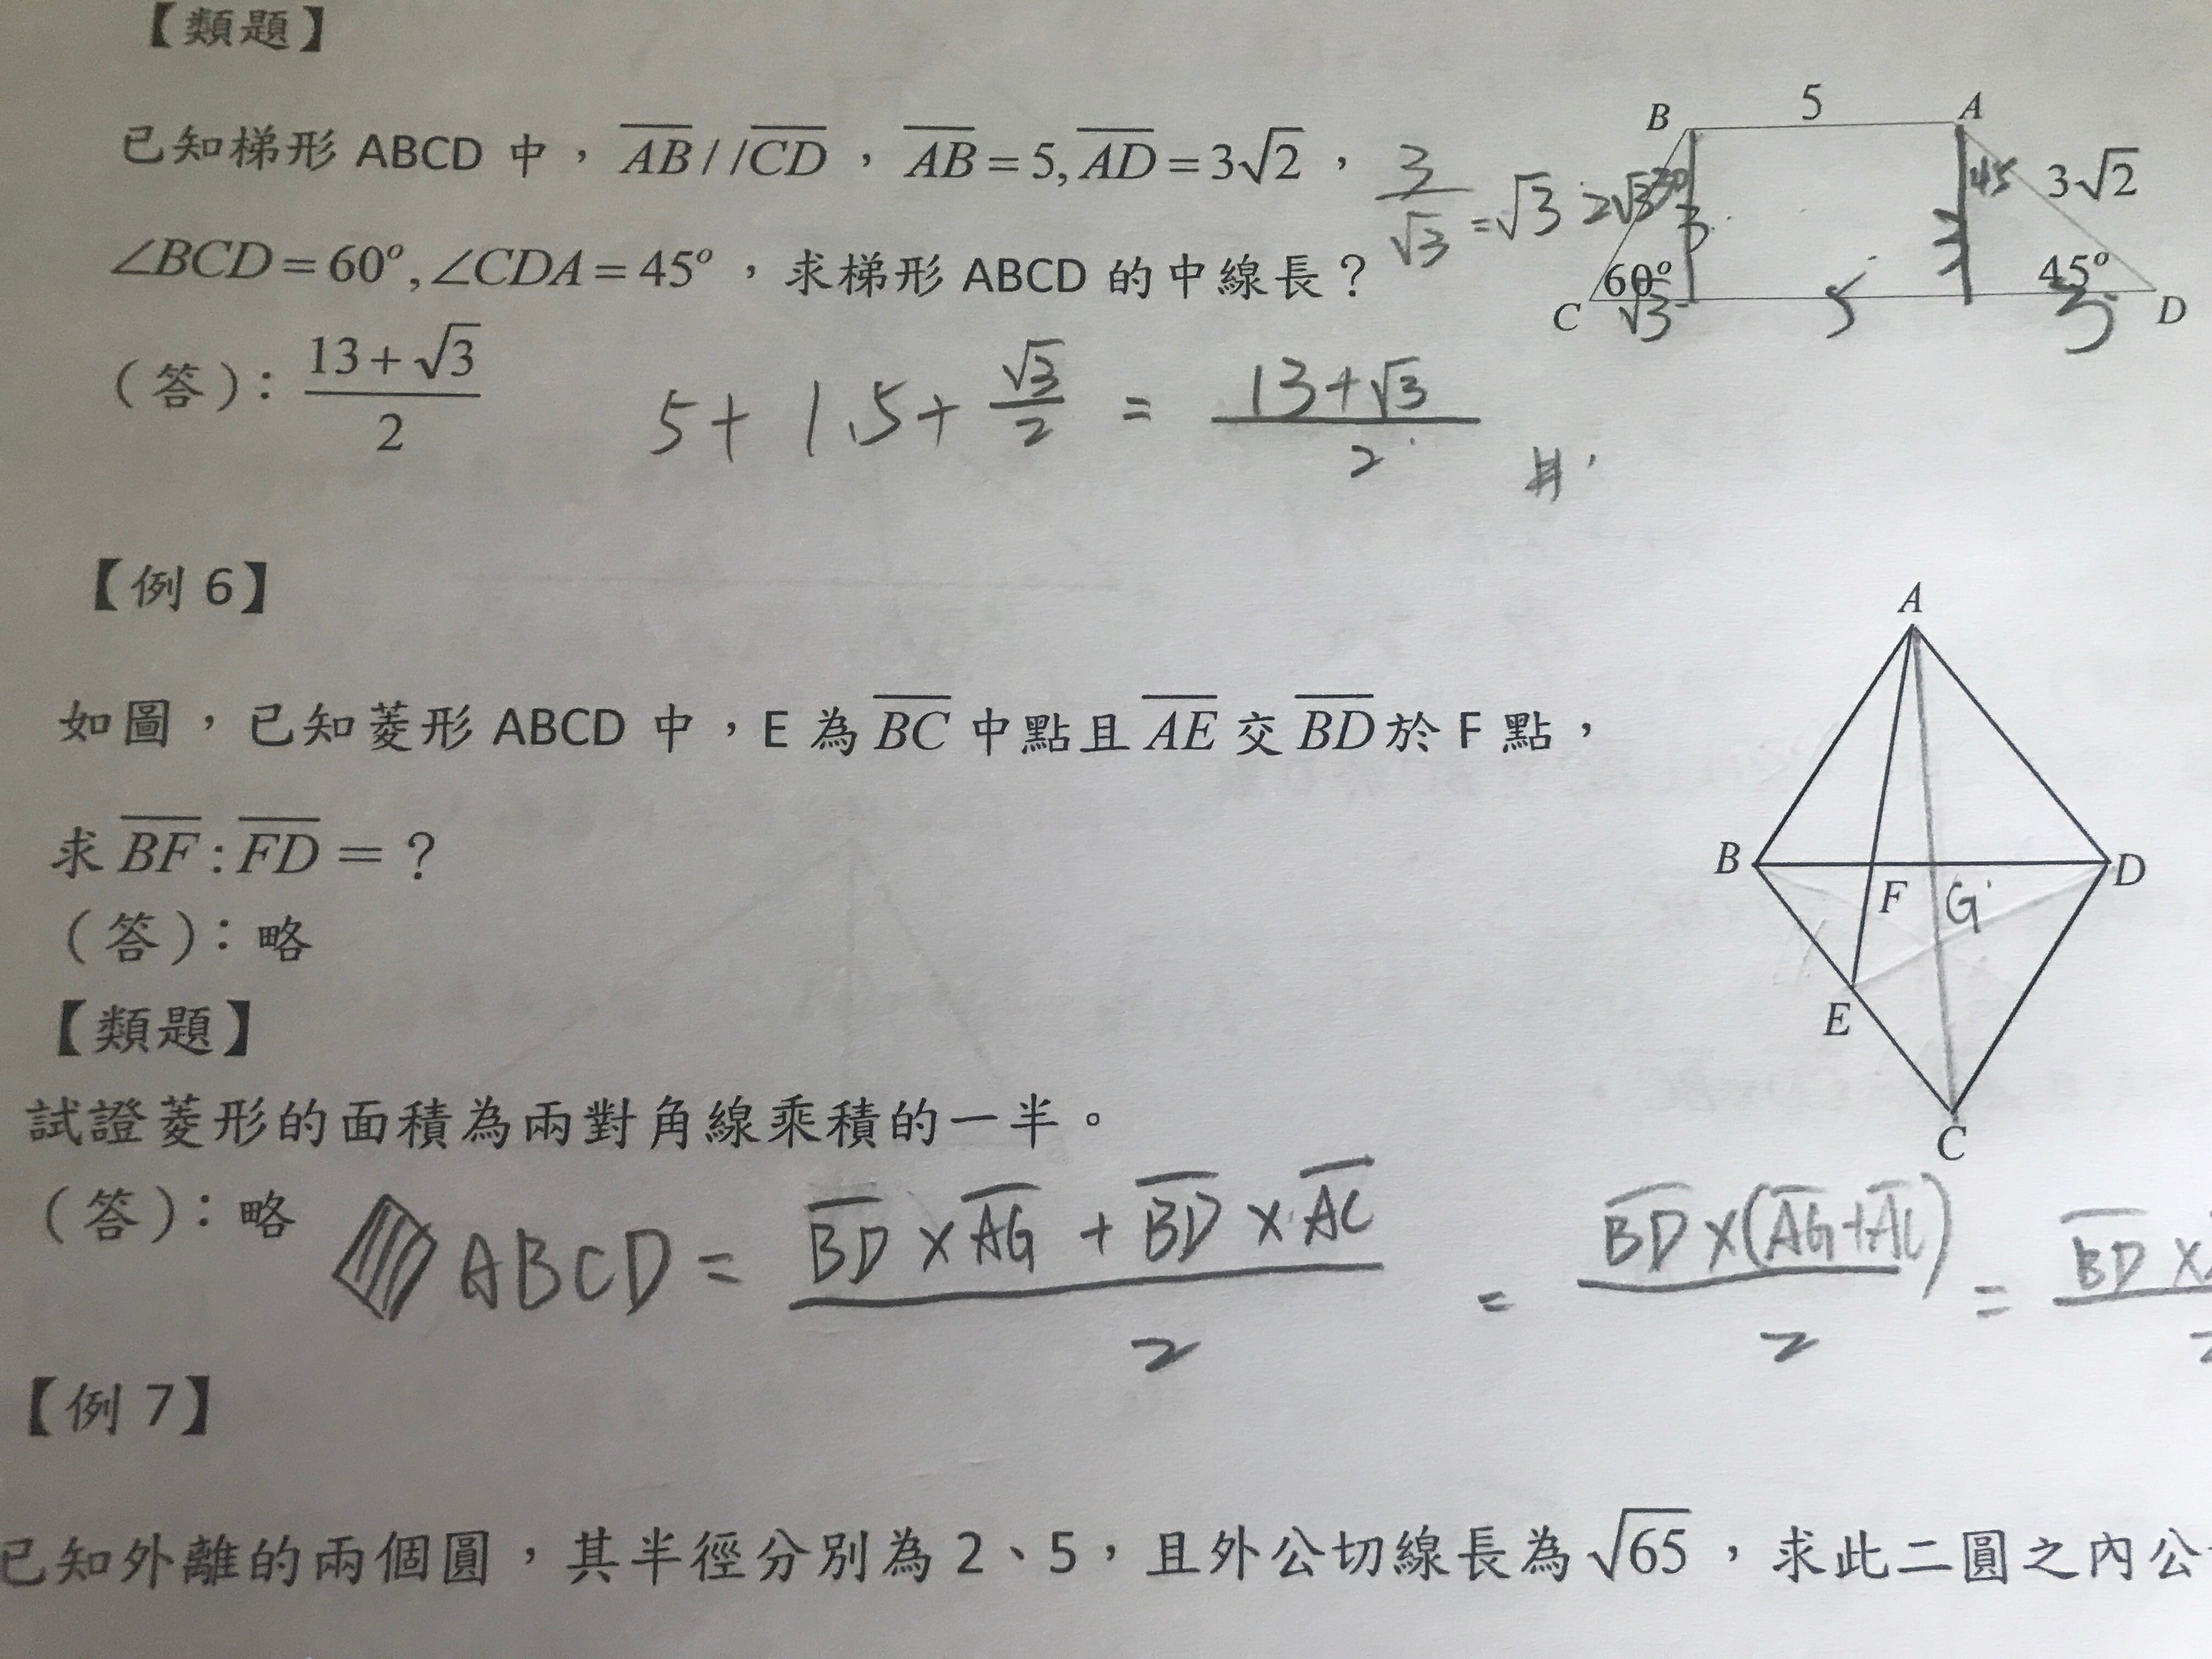 【類題】
已知梯形 ABCD 中，AB//CD，AB=5, AD=3√2，
∠BCD=60°, ∠CDA=45°，求梯形 ABCD 的中線長？
3/√3 = √3
B 5 A
2√3 30 3 3 45 3√2
60° 45°
C √3 5 3 D
（答）：(13+√3)/2
5+1.5+√3/2 = (13+√3)/2 #
【例 6】
如圖，已知菱形 ABCD 中，E 為 BC 中點且 AE 交 BD 於 F 點，
求 BF:FD=？
（答）：略
A
B F G D
E
C
【類題】
試證菱形的面積為兩對角線乘積的一半。
（答）：略
ABCD = (BD×AG + BD×AC)/2 = BD×(AG+AC)/2 = BD×
【例 7】
已知外離的兩個圓，其半徑分別為 2、5，且外公切線長為√65，求此二圓之內公